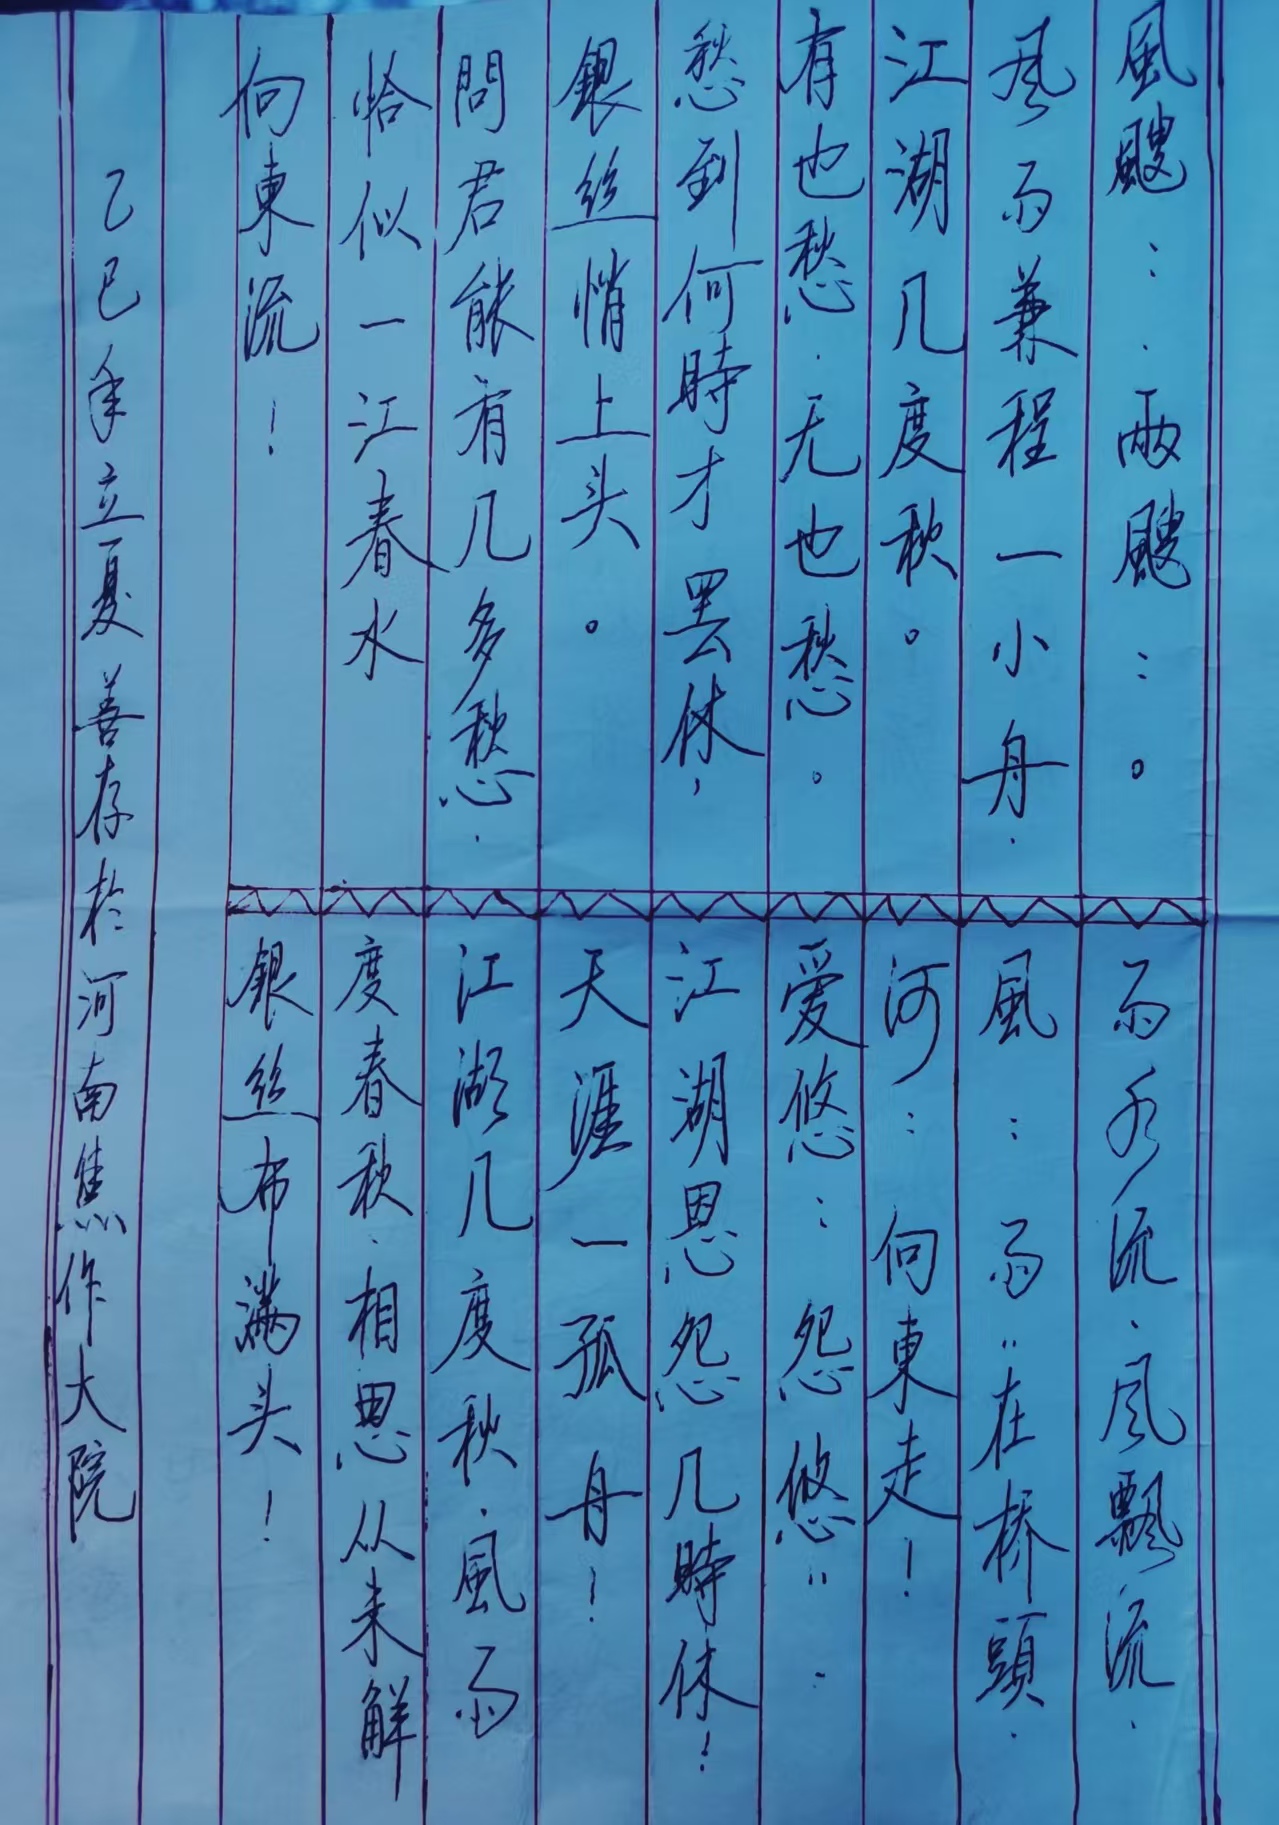 風颼：．兩颼：。
风雨兼程一小舟．
江湖几度秋。
有也愁．无也愁。
愁到何時才罢休，
銀丝悄上头。
問君能有几多愁．
恰似一江春水
向東流！
雨水流．风飄流．
風：雨：在桥頭．
河：向東走！
爱悠：怨悠：
江湖恩怨几時休！
天涯一孤舟！
江湖几度秋．風雨
度春秋．相思从未解
銀丝布满头！
乙巳年立夏善存於河南焦作大院